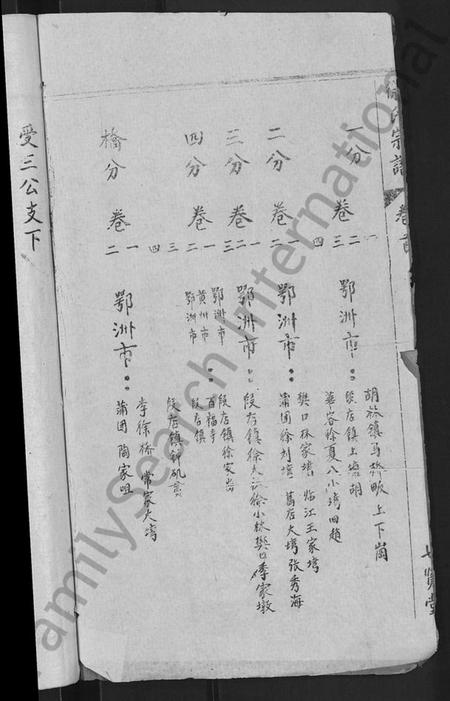 氏宗譜 卷首
七賢堂
一分 卷 一 二 三 四
鄂洲市
胡林鎮馬 畈上下崗
段店鎮上 胡
華容徐夏八小塆四趙
二分 卷 一 二
鄂洲市
樊口林家塆 臨江王家塆
蒲团徐刘塆 葛店大塆张秀海
三分 卷 一 二 三
鄂洲市
段店鎮徐大 徐小林樊口 家墩
四分 卷 一 二 三 四
鄂洲市 段店鎮徐家
黄州市 百福寺
鄂洲市 段店鎮
段店鎮 矶
橋分 卷 一 二
鄂洲市
李徐桥 常家大塆
蒲团 阎家咀
受三公支下
FamilySearch International